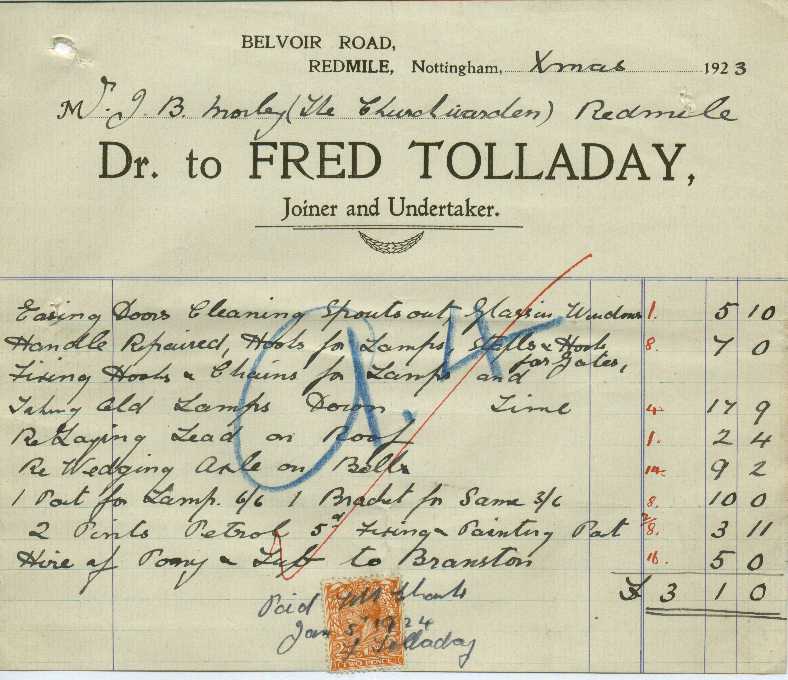 BELVOIR ROAD,
REDMILE, Nottingham, Xmas 1923
Mr. J. B. Morley (The Churchwarden) Redmile
Dr. to FRED TOLLADAY,
Joiner and Undertaker.
Easing Doors Cleaning Spouts out, Glass in Windows 1. 5 10
Handle Repaired, Hooks for Lamps, & Hooks 8. 7 0
for Gates,
Fixing Hooks & Chains for Lamps and
Taking Old Lamps Down Time 4. 17 9
Re Laying Lead on Roof 1. 2 4
Re Wedging Axle on Bells 14. 9 2
1 Post for Lamp. 6/6 1 Bracket for Same 3/6 8. 10 0
2 Pints Petrol 5d Fixing & Painting Post 8. 3 11
Hire of Pony & Tub to Branston 16. 5 0
£ 3 1 0
A.4
Paid With thanks
Jan 5th 1924
F Tolladay
TWO PENCE